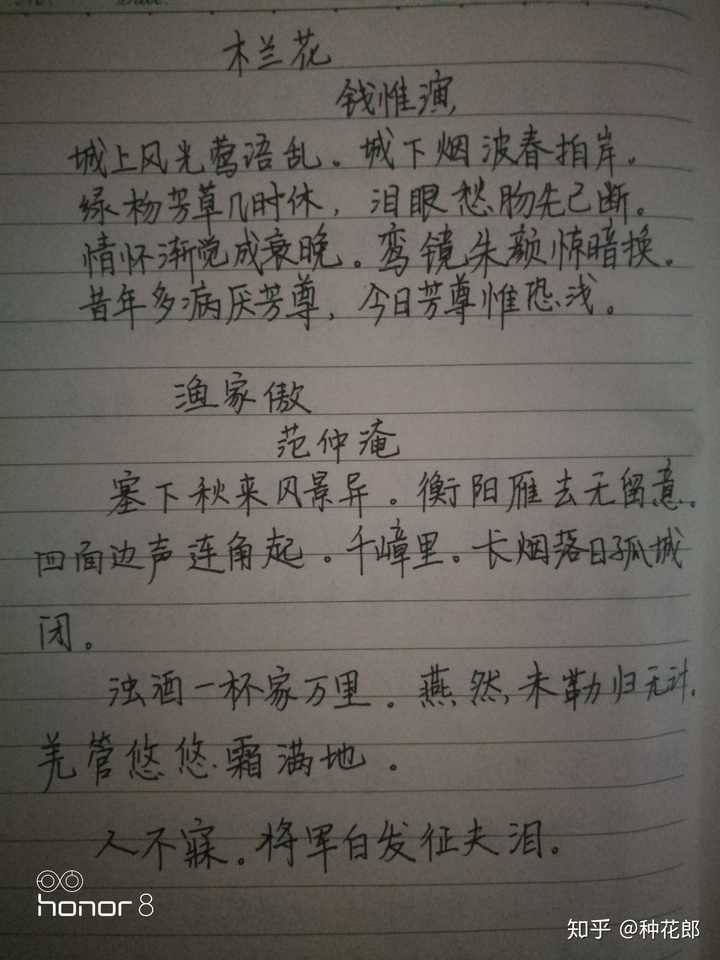 木兰花
钱惟演
城上风光莺语乱。城下烟波春拍岸。
绿杨芳草几时休，泪眼愁肠先已断。
情怀渐觉成衰晚。鸾镜朱颜惊暗换。
昔年多病厌芳尊，今日芳尊惟恐浅。
渔家傲
范仲淹
塞下秋来风景异。衡阳雁去无留意。
四面边声连角起。千嶂里。长烟落日孤城
闭。
浊酒一杯家万里。燕然未勒归无计。
羌管悠悠霜满地。
人不寐。将军白发征夫泪。
honor 8
知乎 @种花郎